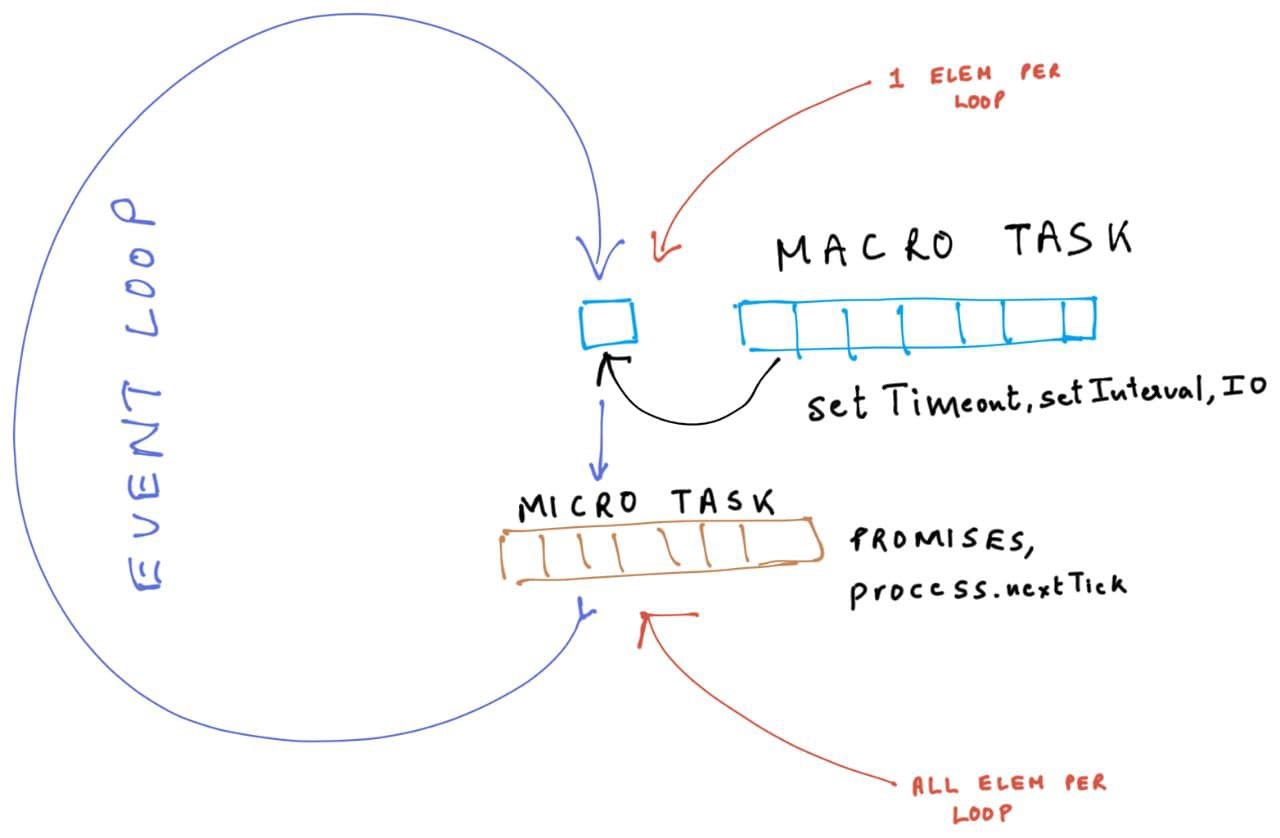 1 ELEM PER
LOOP
MACRO TASK
EVENT LOOP
set Timeout, setInterval, IO
MICRO TASK
PROMISES,
process.nextTick
ALL ELEM PER
LOOP